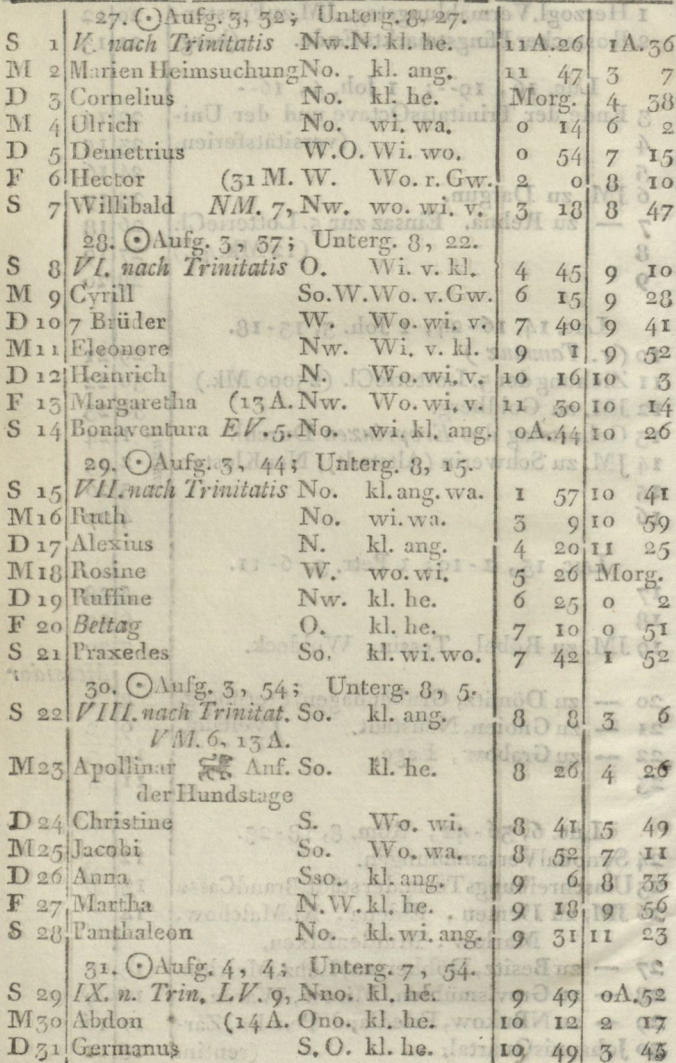 27. ☉Aufg. 3, 32; Unterg. 8, 27.
S 1 V. nach Trinitatis Nw.N. kl. he. 11A.26 1A.36
M 2 Marien Heimsuchung No. kl. ang. 11 47 3 7
D 3 Cornelius No. kl. he. Morg. 4 38
M 4 Ulrich No. wi. wa. 0 14 6 2
D 5 Demetrius W.O. Wi. wo. 0 54 7 15
F 6 Hector (31 M. W. Wo. r. Gw. 2 0 8 10
S 7 Willibald NM. 7, Nw. wo. wi. v. 3 18 8 47
28. ☉Aufg. 3, 37; Unterg. 8, 22.
S 8 VI. nach Trinitatis O. Wi. v. kl. 4 45 9 10
M 9 Cyrill So.W. Wo. v. Gw. 6 15 9 28
D 10 7 Brüder W. Wo. wi. v. 7 40 9 41
M 11 Eleonore Nw. Wi. v. kl. 9 1 9 52
D 12 Heinrich N. Wo. wi. v. 10 16 10 3
F 13 Margaretha (13 A. Nw. Wo. wi. v. 11 30 10 14
S 14 Bonaventura EV. 5. No. wi. kl. ang. 0A.44 10 26
29. ☉Aufg. 3, 44; Unterg. 8, 15.
S 15 VII. nach Trinitatis No. kl. ang. wa. 1 57 10 41
M 16 Ruth No. wi. wa. 3 9 10 59
D 17 Alexius N. kl. ang. 4 20 11 25
M 18 Rosine W. wo. wi. 5 26 Morg.
D 19 Ruffine Nw. kl. he. 6 25 0 2
F 20 Bettag O. kl. he. 7 10 0 51
S 21 Praxedes So. kl. wi. wo. 7 42 1 52
30. ☉Aufg. 3, 54; Unterg. 8, 5.
S 22 VIII. nach Trinitat. So. kl. ang. 8 8 3 6
VM. 6, 13 A.
M 23 Apollinar Anf. So. kl. he. 8 26 4 26
der Hundstage
D 24 Christine S. Wo. wi. 8 41 5 49
M 25 Jacobi So. Wo. wa. 8 52 7 11
D 26 Anna Sso. kl. ang. 9 6 8 33
F 27 Martha N.W. kl. he. 9 18 9 56
S 28 Panthaleon No. kl. wi. ang. 9 31 11 23
31. ☉Aufg. 4, 4; Unterg. 7, 54.
S 29 IX. n. Trin. LV. 9, Nno. kl. he. 9 49 0A.52
M 30 Abdon (14 A. Ono. kl. he. 10 12 2 17
D 31 Germanus S. O. kl. he. 10 49 3 45